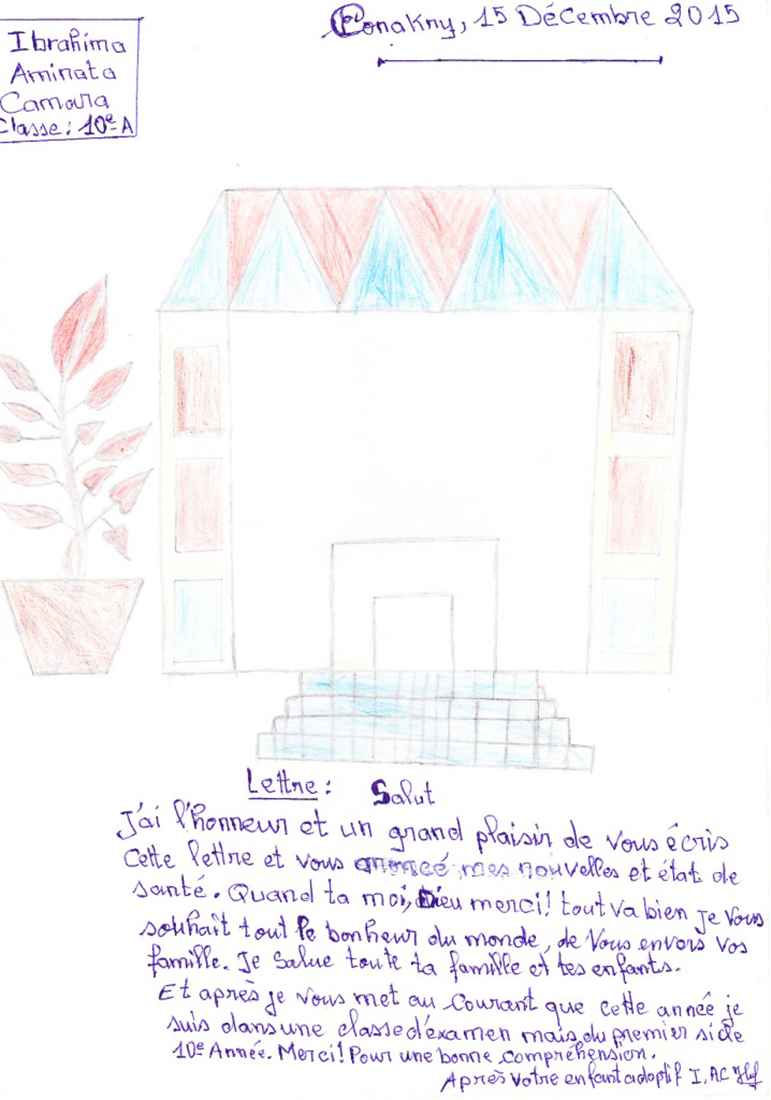 Ibrahima
Aminata
Camara
Classe : 10e A
Conakry, 15 Décembre 2015
Lettre : Salut
J'ai l'honneur et un grand plaisir de vous écris
Cette lettre et vous anoncé mes nouvelles et état de
santé. Quand ta moi, Dieu merci! tout va bien je vous
souhait tout le bonheur du monde, de vous envors vos
famille. Je Salue toute ta famille et tes enfants.
Et après je vous met au courant que cette année je
suis dans une classe d'examen mais du premier sicle
10e Année. Merci! Pour une bonne compréhension.
Après votre enfant adoptif I. AC